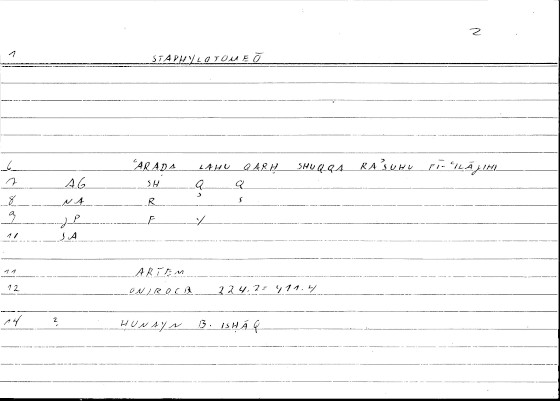 2
1 STAPHYLOTOMEŌ
6 ʿARAḌA LAHU QARḤ SHUQQA RAʾSUHU FĪ-ʿILĀJIHI
7 AG SH Q Q
8 NA R ʾ S
9 JP F Y
10 SA
11 ARTEM
12 ONIROCR 224.7= 411.4
14 2 HUNAYN B. ISḤĀQ